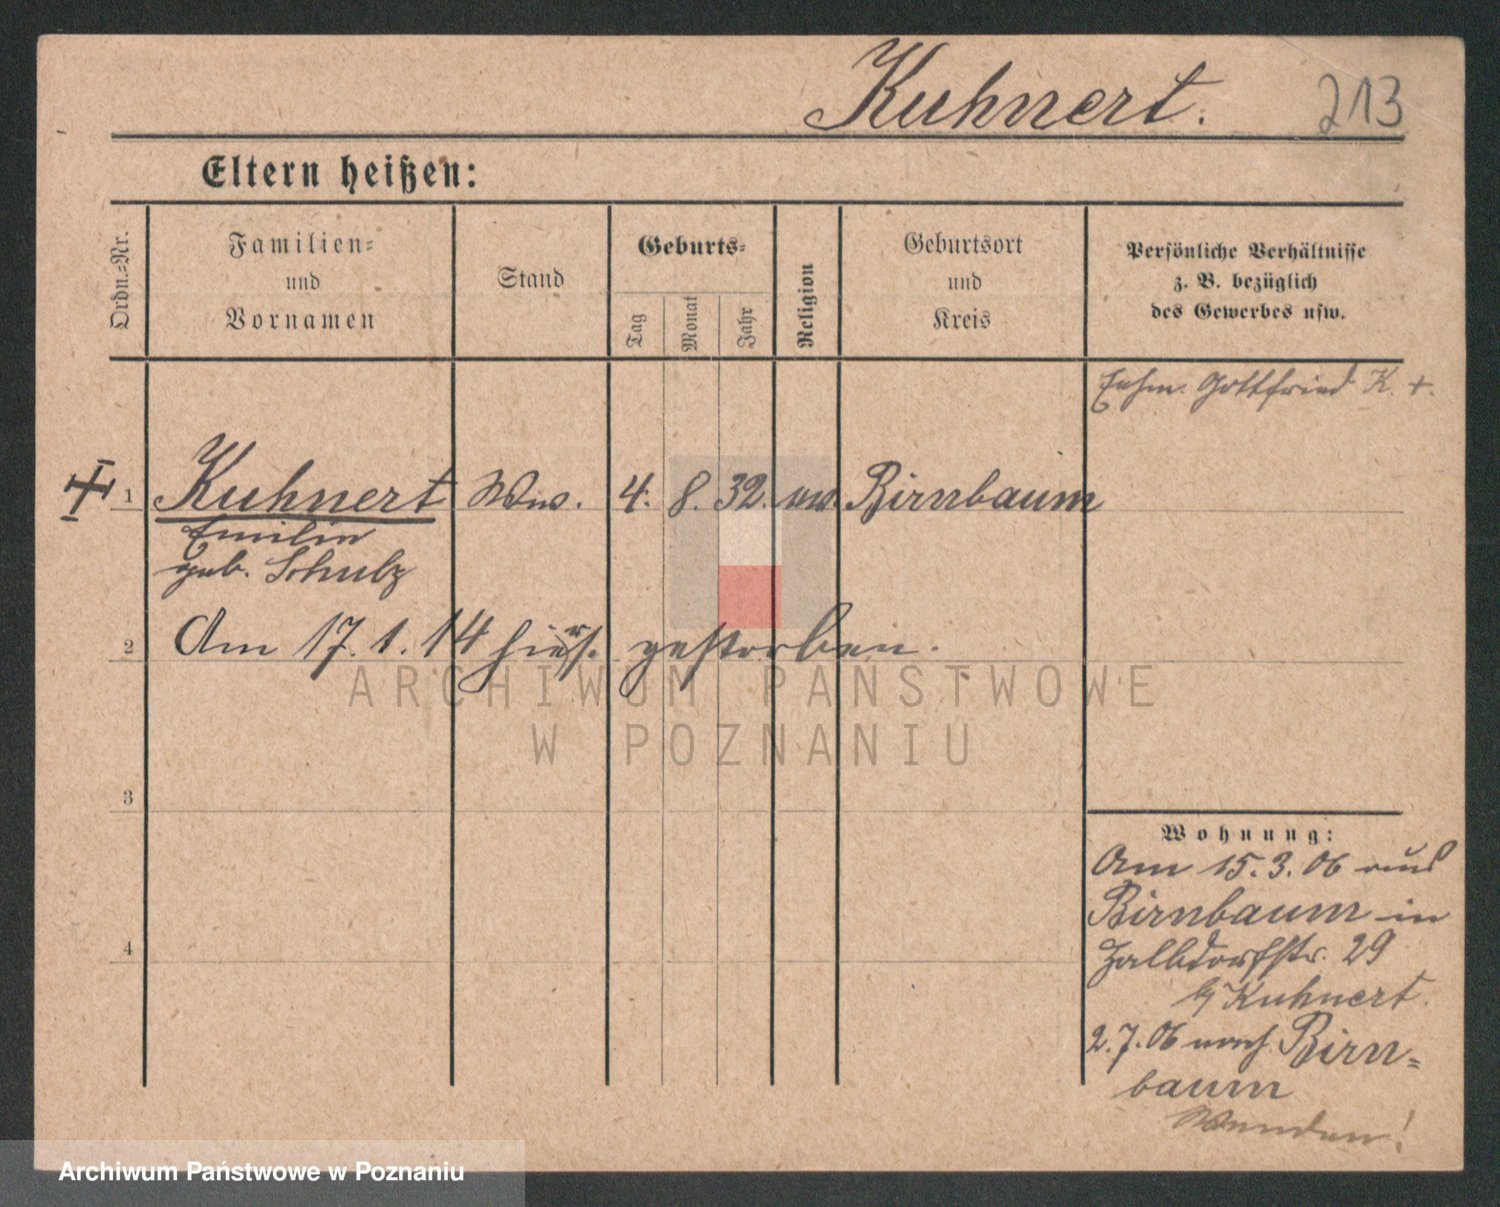 Kuhnert. 213
Eltern heißen:
Ordn.-Nr.
Familien-
und
Vornamen
Stand
Geburts-
Tag
Monat
Jahr
Religion
Geburtsort
und
Kreis
Persönliche Verhältnisse
z. B. bezüglich
des Gewerbes usw.
Gottfried K. +.
1 Kuhnert Ww. 4. 8. 32. Birnbaum
Emilie
geb. Schulz
2 Am 17.1.14 hier gestorben.
ARCHIWUM PAŃSTWOWE
W POZNANIU
3
4
Wohnung:
Am 15.3.06 aus
Birnbaum in
29
b/ Kuhnert.
2.7.06 nach Birn=
baum
Wenden!
Archiwum Państwowe w Poznaniu